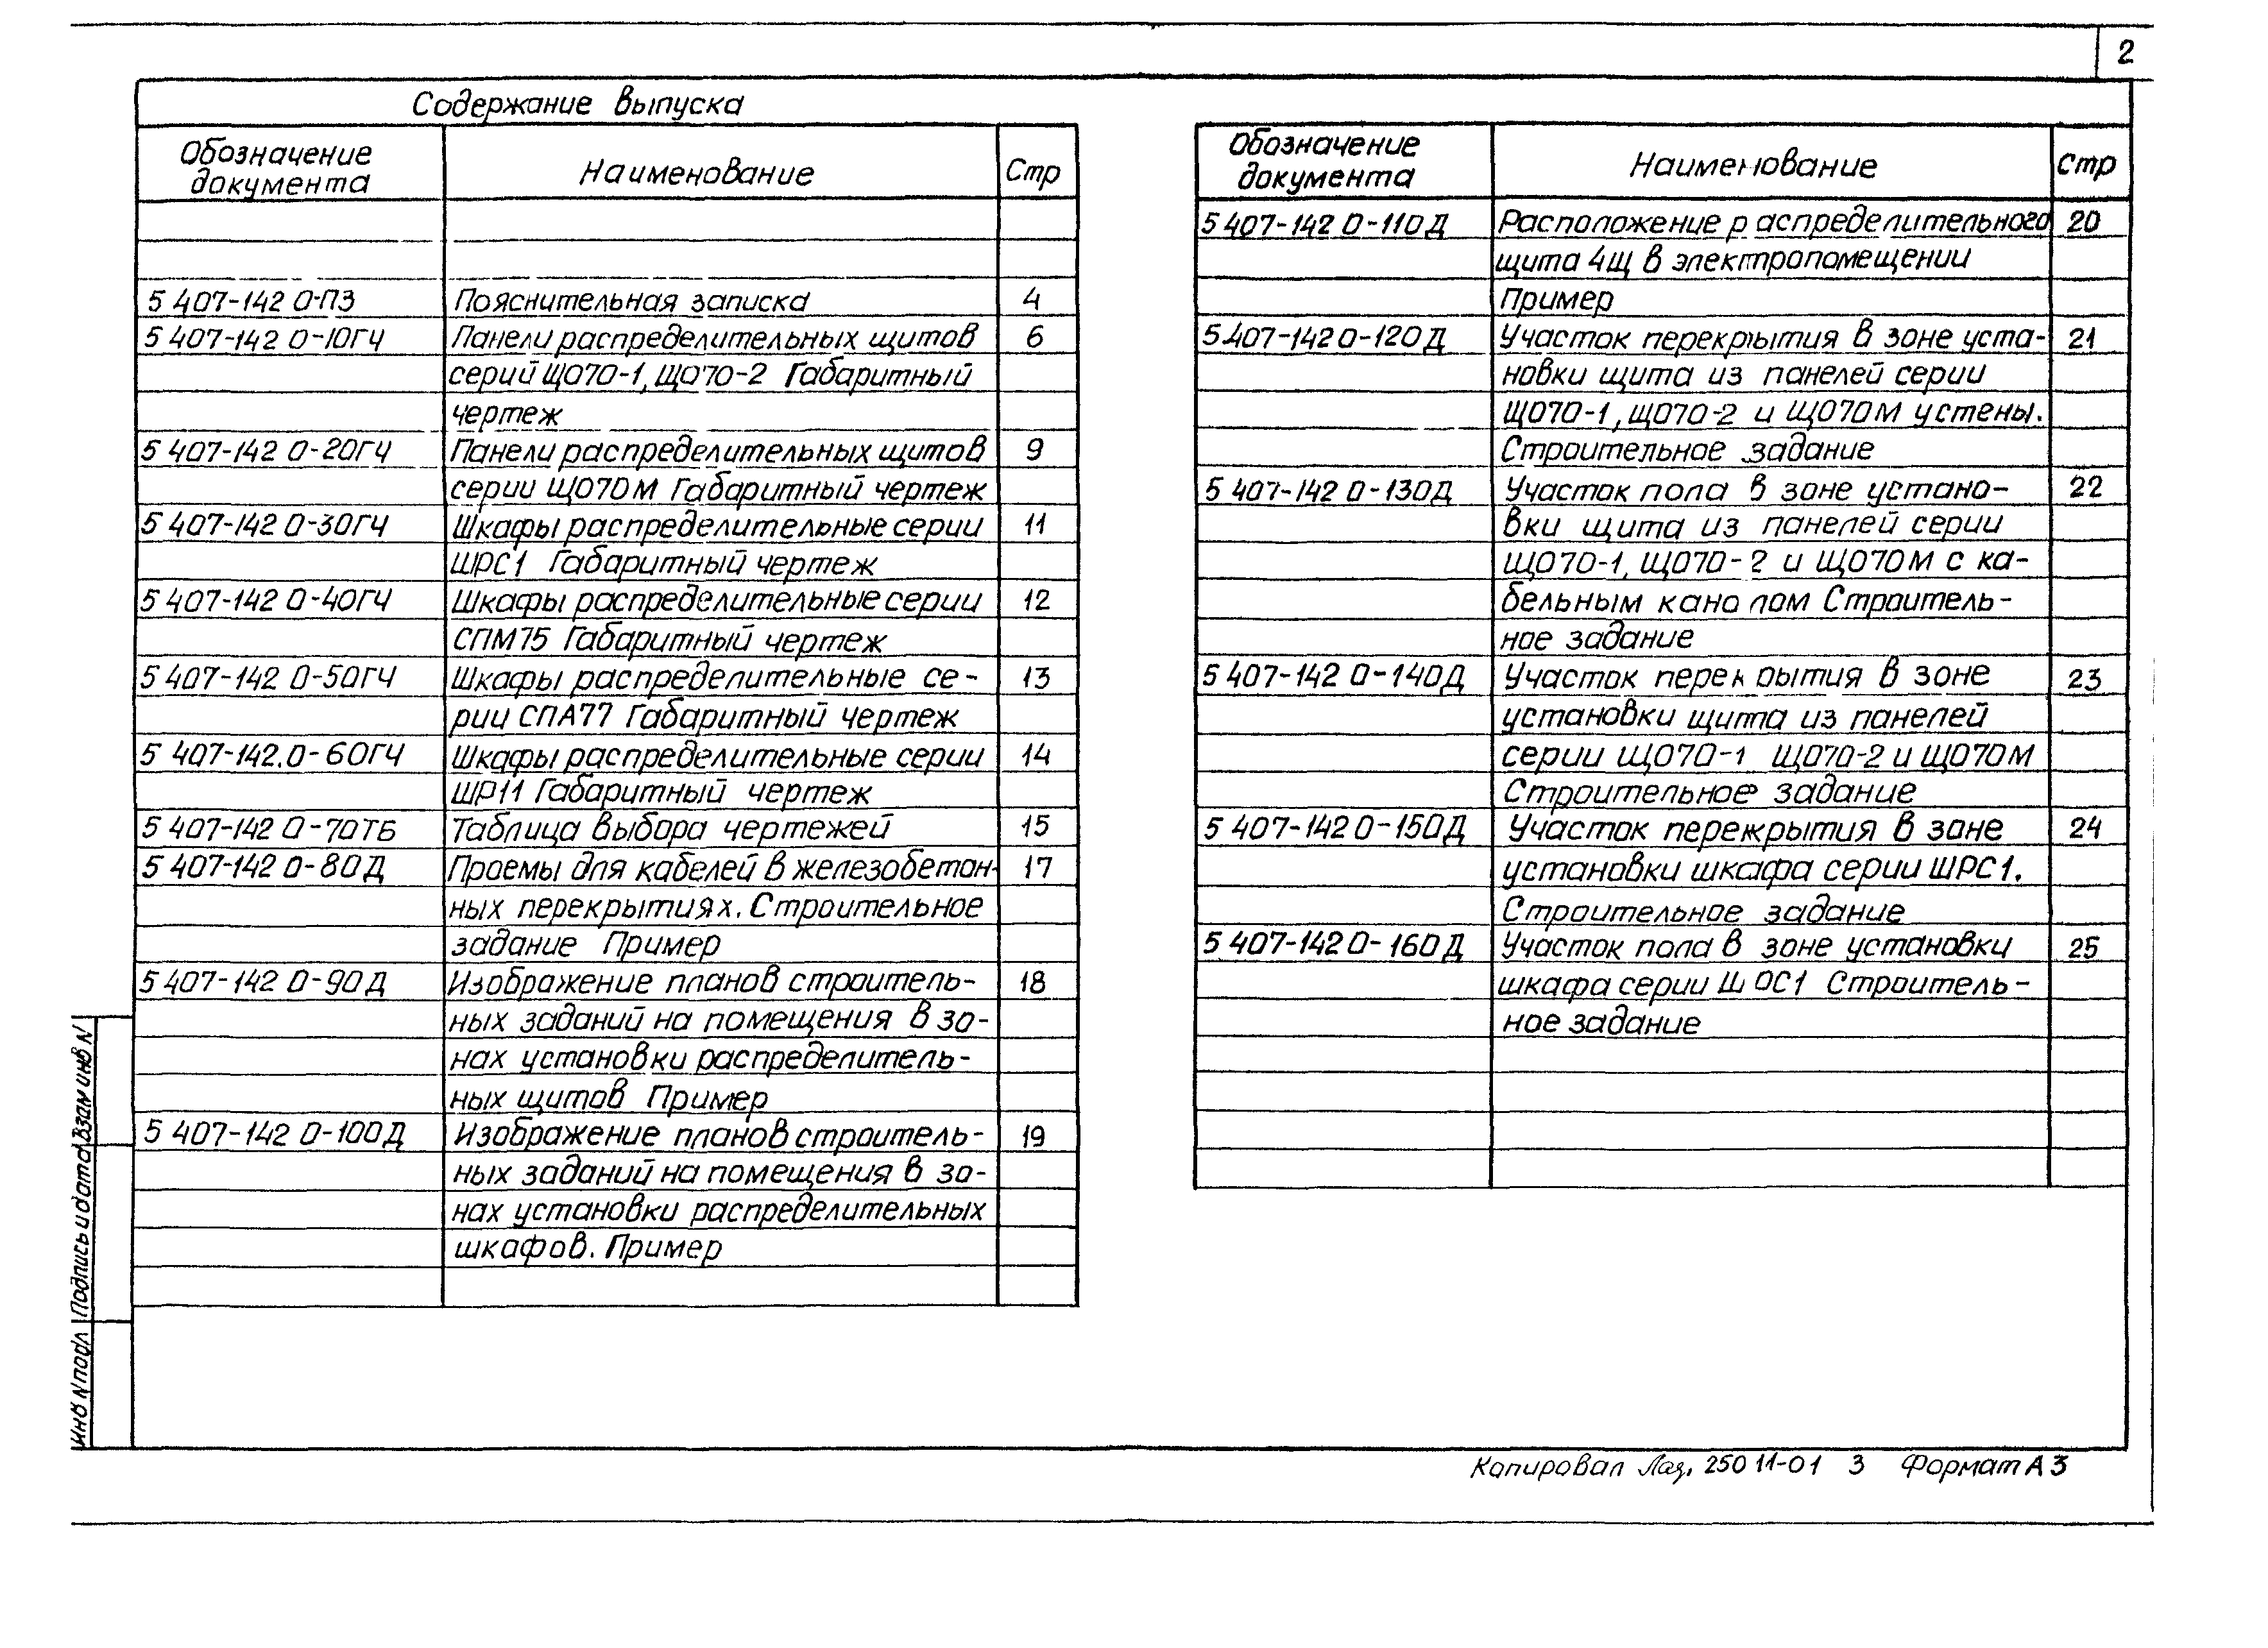 2
Содержание выпуска
Обозначение документа Наименование Стр
5 407-142 0-ПЗ Пояснительная записка 4
5 407-142 0-10ГЧ Панели распределительных щитов 6
серий ЩО70-1, ЩО70-2 Габаритный
чертеж
5 407-142 0-20ГЧ Панели распределительных щитов 9
серии ЩО70М Габаритный чертеж
5 407-142 0-30ГЧ Шкафы распределительные серии 11
ШРС1 Габаритный чертеж
5 407-142 0-40ГЧ Шкафы распределительные серии 12
СПМ75 Габаритный чертеж
5 407-142 0-50ГЧ Шкафы распределительные се- 13
рии СПА77 Габаритный чертеж
5 407-142.0-60ГЧ Шкафы распределительные серии 14
ШР11 Габаритный чертеж
5 407-142 0-70ТБ Таблица выбора чертежей 15
5 407-142 0-80Д Проемы для кабелей в железобетон- 17
ных перекрытиях. Строительное
задание Пример
5 407-142 0-90Д Изображение планов строитель- 18
ных заданий на помещения в зо-
нах установки распределитель-
ных щитов Пример
5 407-142 0-100Д Изображение планов строитель- 19
ных заданий на помещения в зо-
нах установки распределительных
шкафов. Пример
Обозначение документа Наименование Стр
5 407-142 0-110Д Расположение распределительного 20
щита 4Щ в электропомещении
Пример
5.407-142 0-120Д Участок перекрытия в зоне уста- 21
новки щита из панелей серии
ЩО70-1, ЩО70-2 и ЩО70М у стены.
Строительное задание
5 407-142 0-130Д Участок пола в зоне устано- 22
вки щита из панелей серии
ЩО70-1, ЩО70-2 и ЩО70М с ка-
бельным каналом Строитель-
ное задание
5 407-142 0-140Д Участок перекрытия в зоне 23
установки щита из панелей
серии ЩО70-1 ЩО70-2 и ЩО70М
Строительное задание
5 407-142 0-150Д Участок перекрытия в зоне 24
установки шкафа серии ШРС1.
Строительное задание
5 407-142 0-160Д Участок пола в зоне установки 25
шкафа серии ШРС1 Строитель-
ное задание
Инв N подл Подпись и дата Взам инв N
Копировал Лаз. 25011-01 3 Формат А3